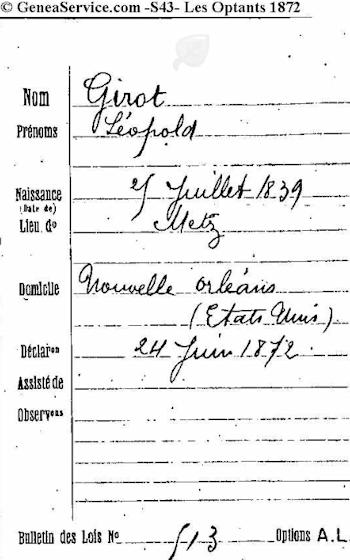 © GeneaService.com -S43- Les Optants 1872
Nom Girot
Prénoms Léopold
Naissance 25 Juillet 1839
(Date de)
Lieu de Metz
Domicile Nouvelle orléans
(Etats Unis).
Déclaron 24 Juin 1872.
Assisté de
Observons
Bulletin des Lois No 513 Options A.L.